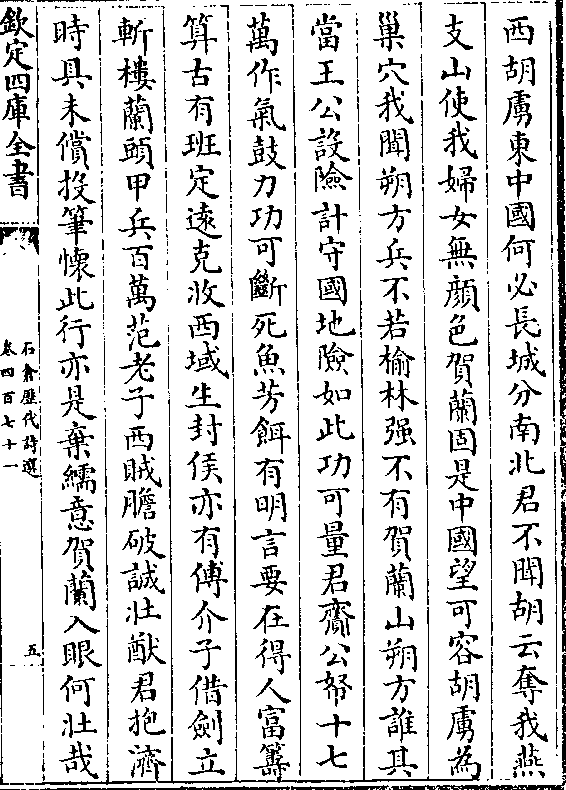 西胡虜東中國何必長城分南北君不聞胡云奪我燕
支山使我婦女無顔色賀蘭固是中國望可容胡虜為
巢穴我聞朔方兵不若榆林强不有賀蘭山朔方誰其
當王公設險計守國地險如此功可量君齎公帑十七
萬作氣鼓力功可斷死魚芳餌有明言要在得人富籌
算古有班定逺克收西域生封侯亦有傅介子借劍立
斬樓蘭頭甲兵百萬范老子西賊膽破誠壮猷君抱濟
時具未償投筆懷此行亦是棄繻意賀蘭入眼何壮哉
欽定四庫全書
石倉歴代詩選
卷四百七十一
五